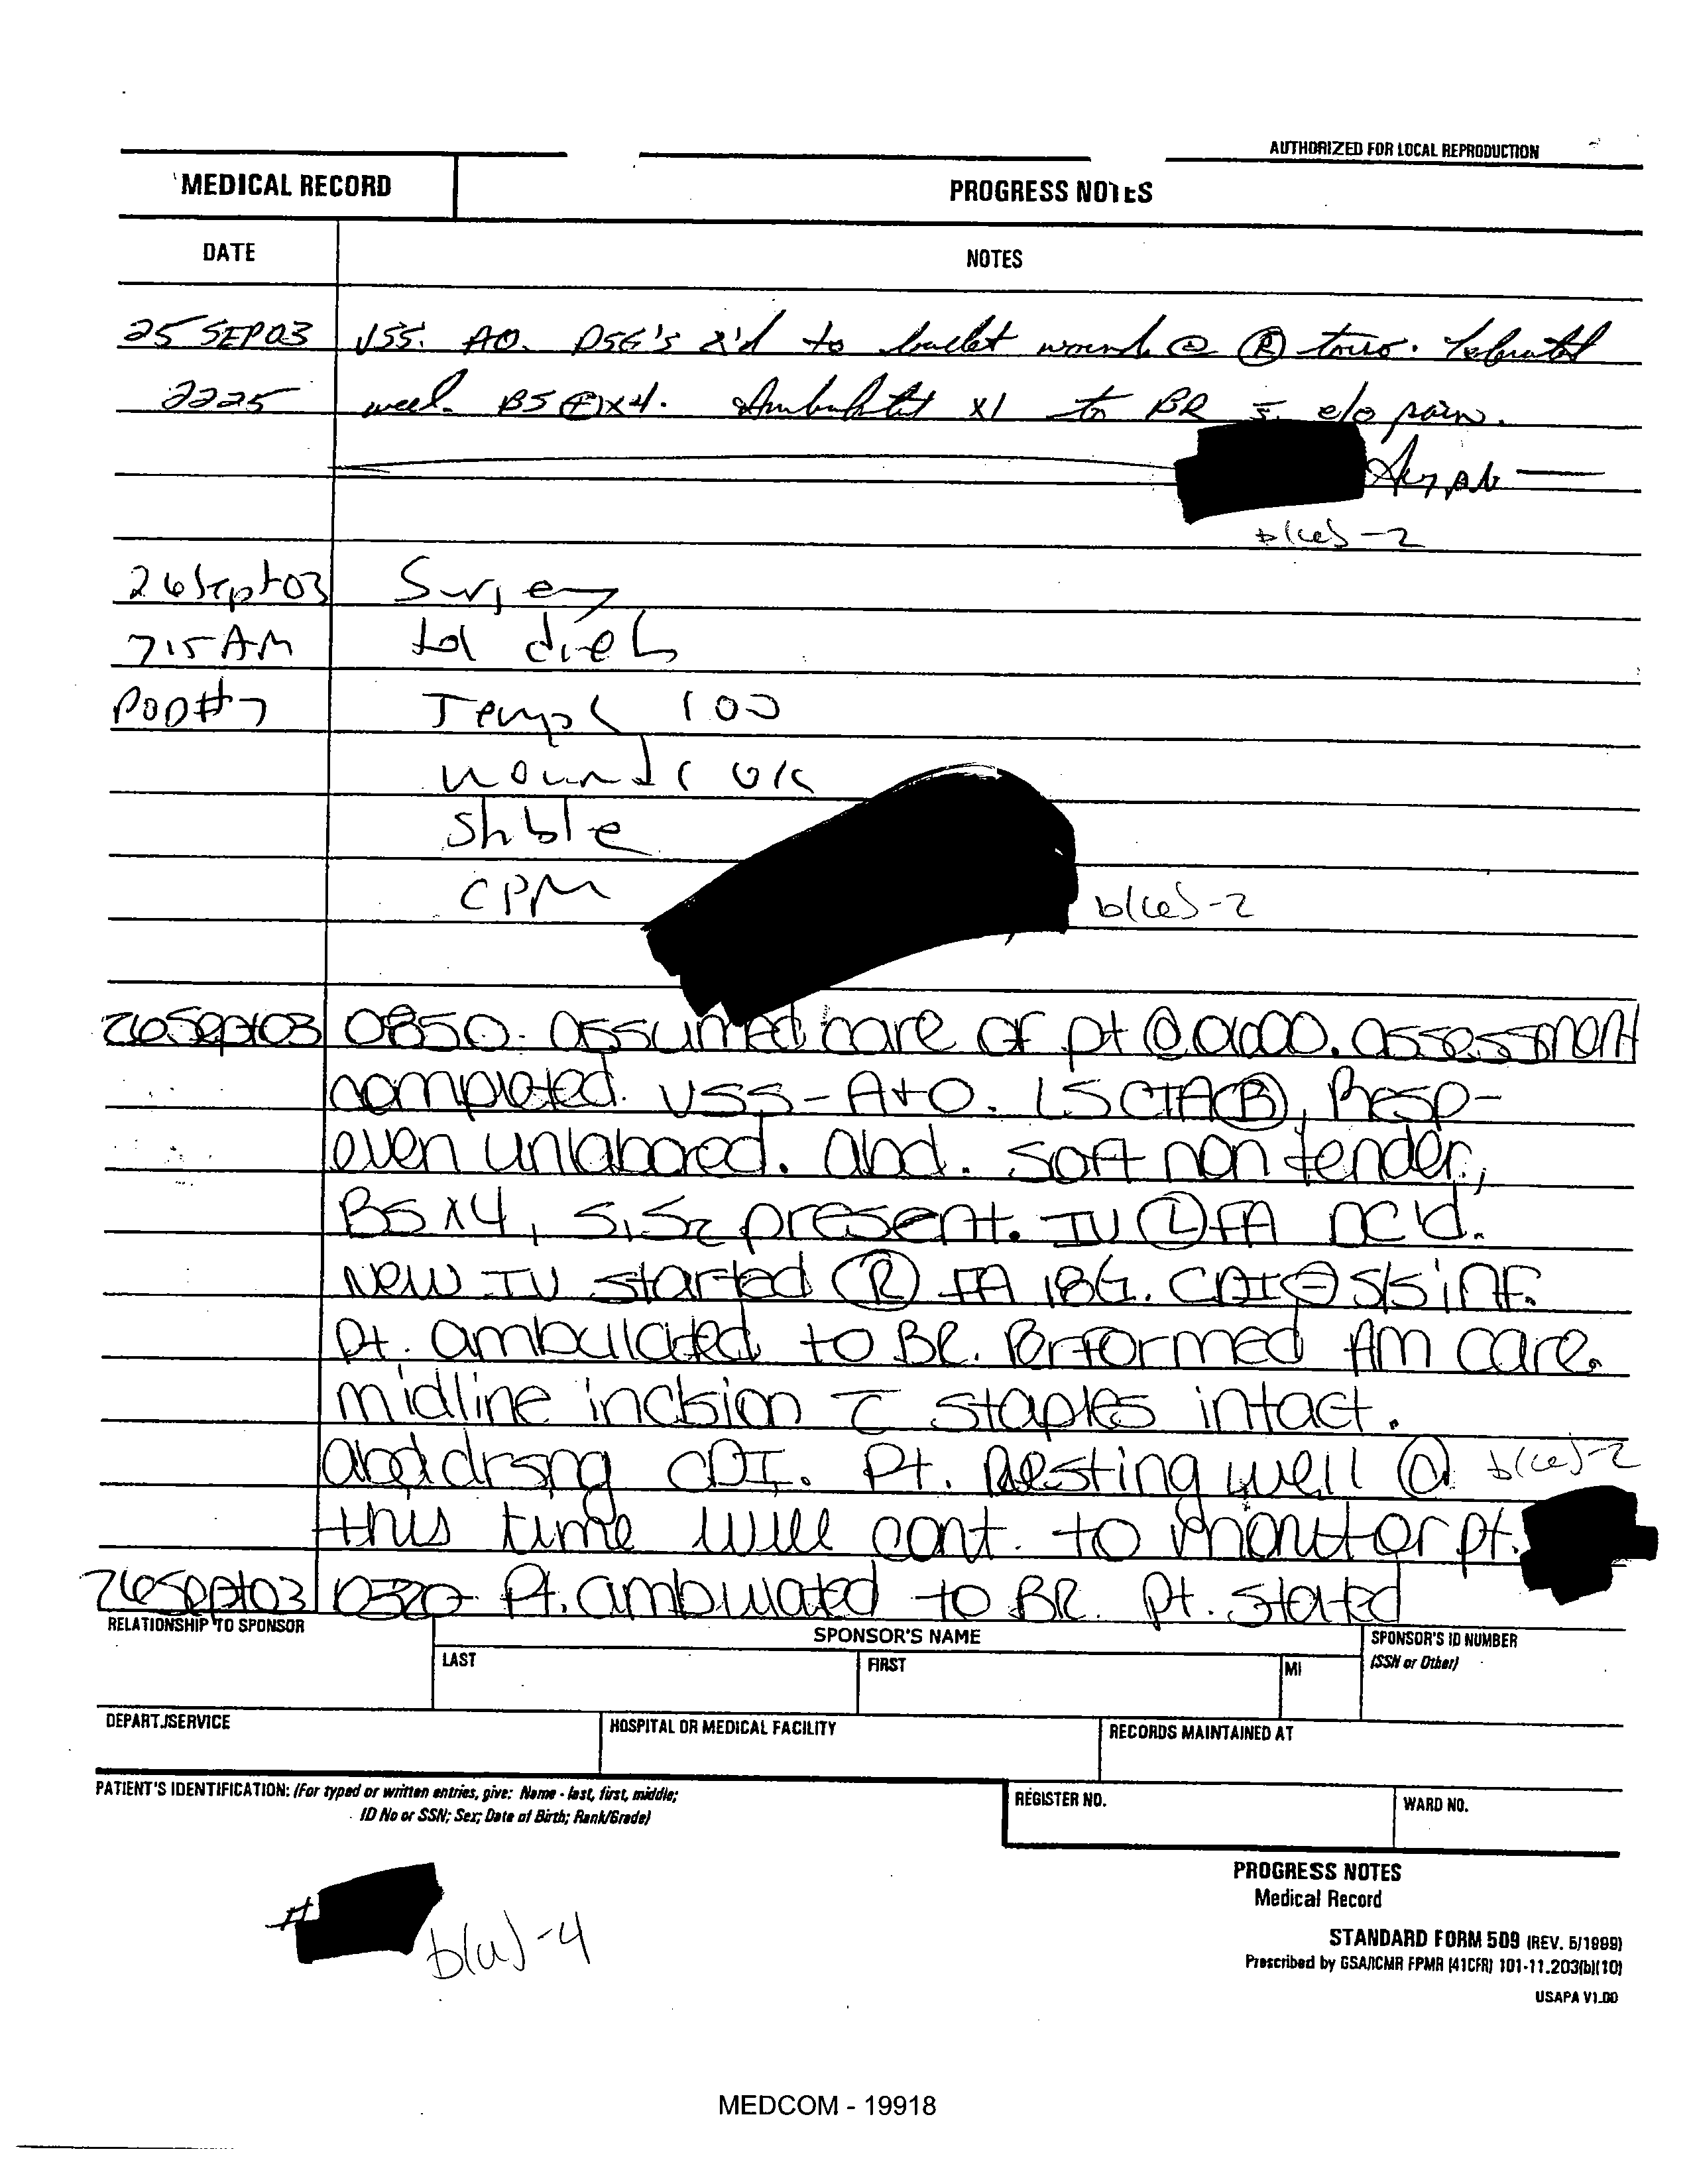 AUTHORIZED FOR LOCAL REPRODUCTION
MEDICAL RECORD
PROGRESS NOTES
DATE
NOTES
25 SEP 03 VSS. AO. DSG's x'd to bullet wounds @ Ⓡ torso. Tolerated
2225 well. BS ⊕x4. Ambulated x1 to BR s̄ c/o pain.
b(6)-2
26 Sept 03 Surgery
715 AM tol diet
POD#7 Temp 100
wounds ok
Stable
CPM
b(6)-2
26Sept03 0850- assumed care of pt @ 0600. assessment
completed. VSS- A+O. LSCTAⒷ, Resp-
even unlabored. abd. soft non tender,
BS x4, S1S2 present. IV Ⓛ FA DC'd.
New IV started Ⓡ FA 18G. CDI ⊖ S/S inf.
Pt. ambulated to BR. Performed AM care.
midline incision c̄ staples intact.
abd drsng CDI. Pt. Resting well @
b(6)-2
this time will cont. to monitor pt.
26Sept03 Pt. ambulated to BR. Pt. stated
RELATIONSHIP TO SPONSOR
SPONSOR'S NAME
SPONSOR'S ID NUMBER
(SSN or Other)
LAST
FIRST
MI
DEPART./SERVICE
HOSPITAL OR MEDICAL FACILITY
RECORDS MAINTAINED AT
PATIENT'S IDENTIFICATION: (For typed or written entries, give: Name - last, first, middle;
ID No or SSN; Sex; Date of Birth; Rank/Grade)
REGISTER NO.
WARD NO.
#
b(6)-4
PROGRESS NOTES
Medical Record
STANDARD FORM 509 (REV. 5/1999)
Prescribed by GSA/ICMR FPMR (41CFR) 101-11.203(b)(10)
USAPA V1.00
MEDCOM - 19918